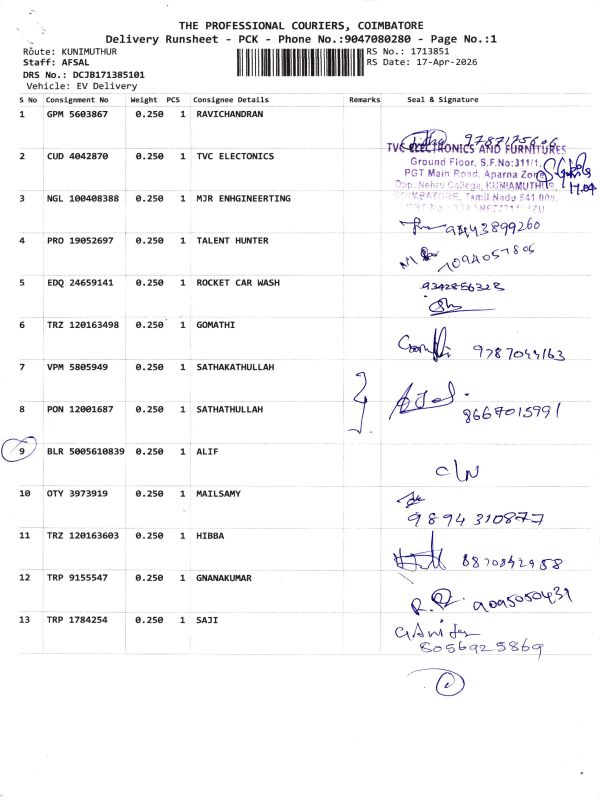 THE PROFESSIONAL COURIERS, COIMBATORE
Delivery Runsheet - PCK - Phone No.:9047080280 - Page No.:1
Route: KUNIMUTHUR RS No.: 1713851
Staff: AFSAL RS Date: 17-Apr-2026
DRS No.: DCJB171385101
Vehicle: EV Delivery
S No Consignment No Weight PCS Consignee Details Remarks Seal & Signature
1 GPM 5603867 0.250 1 RAVICHANDRAN
9787175606
2 CUD 4042870 0.250 1 TVC ELECTONICS
TVC ELECTRONICS AND FURNITURES
Ground Floor, S.F.No:311/1,
PGT Main Road, Aparna Zone
Opp. Nehru College, KUNIAMUTHUR,
COIMBATORE, Tamil Nadu 641 008,
17.04
3 NGL 100408388 0.250 1 MJR ENHGINEERTING
9443899260
4 PRO 19052697 0.250 1 TALENT HUNTER
5 EDQ 24659141 0.250 1 ROCKET CAR WASH
9342856328
6 TRZ 120163498 0.250 1 GOMATHI
9787044163
7 VPM 5805949 0.250 1 SATHAKATHULLAH
8 PON 12001687 0.250 1 SATHATHULLAH
8667015991
9 BLR 5005610839 0.250 1 ALIF
C/N
10 OTY 3973919 0.250 1 MAILSAMY
9894310877
11 TRZ 120163603 0.250 1 HIBBA
8870842958
12 TRP 9155547 0.250 1 GNANAKUMAR
9095050431
13 TRP 1784254 0.250 1 SAJI
8056925869